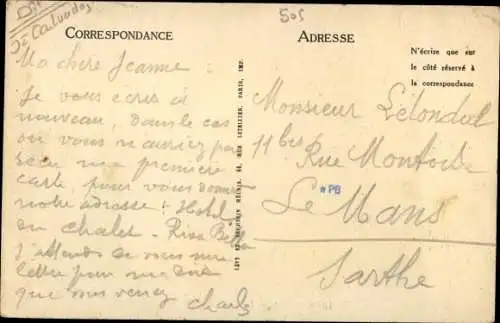 D14
Calvados
505
CORRESPONDANCE
ADRESSE
N'écrire que sur
le côté réservé à
la correspondance
Ma chère Jeanne
Je vous écris à
nouveau, dans le cas
où vous n'auriez pas
reçu ma première
carte, pour vous donner
notre adresse : Hotel
du Chalet - Riva Bella
J'attends de vous une
lettre pour me dire
que vous venez
Charles
LEVY ET NEURDEIN RÉUNIS, 44, RUE LETELLIER, PARIS, IMP.
Monsieur Lelondel
11 bis Rue Montoise
*PB
Le Mans
Sarthe